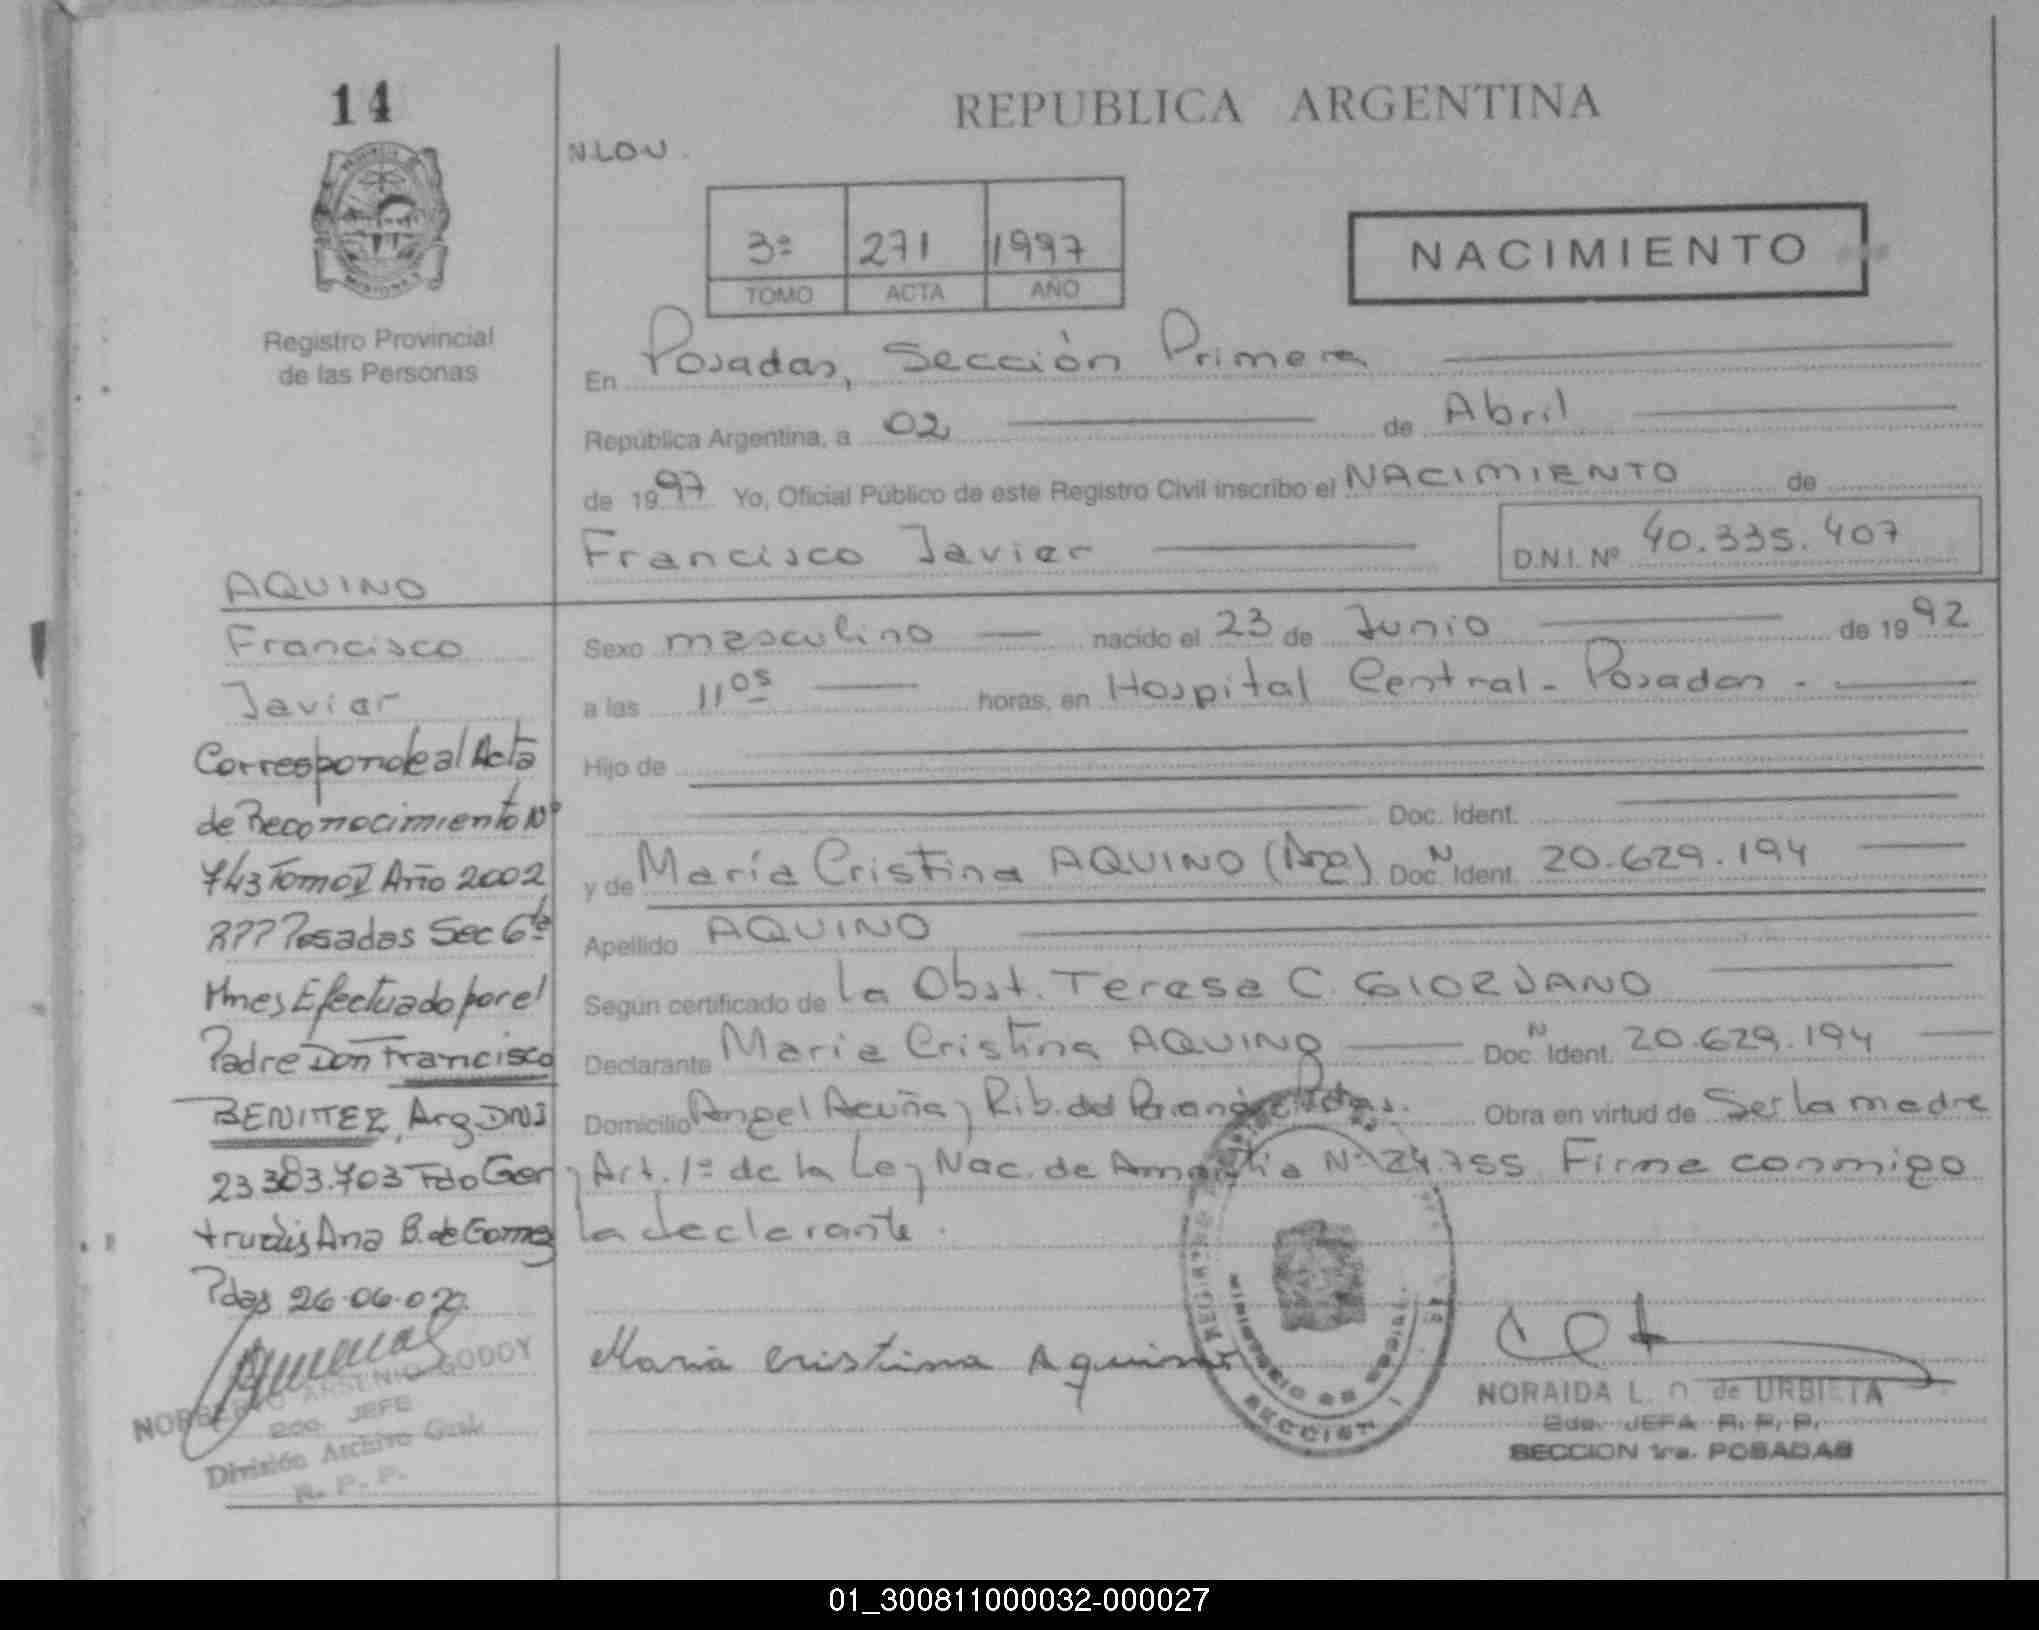 14
REPUBLICA ARGENTINA
N.LOU.
3º 271 1997
TOMO ACTA AÑO
NACIMIENTO
Registro Provincial
de las Personas
En Posadas, Sección Primera
República Argentina, a 02 de Abril
de 1997 Yo, Oficial Público de este Registro Civil inscribo el NACIMIENTO de
Francisco Javier D.N.I. Nº 40.335.407
Sexo masculino nacido el 23 de Junio de 1992
a las 11 05 horas, en Hospital Central - Posadas -
Hijo de
Doc. Ident.
y de María Cristina AQUINO (Arg) Doc. N Ident. 20.629.194
Apellido AQUINO
Según certificado de la Obst. Teresa C. GIORDANO
Declarante María Cristina AQUINO Doc. N Ident. 20.629.194
Domicilio Angel Acuña y Rib. del Paraná Pdas. Obra en virtud de Ser la madre
y Art. 1º de la Ley Nac. de Amnistía Nº 24.755. Firma conmigo
la declarante.
Maria Cristina Aquino
MINISTERIO DE
SECCION 1
NORAIDA L. O. de URBIETA
2da. JEFA R. P. P.
SECCION 1ra. POSADAS
AQUINO
Francisco
Javier
Corresponde al Acta
de Reconocimiento Nº
743 Tomo I Año 2002
RPP Posadas Sec 6ta
Mnes Efectuado por el
Padre Don Francisco
BENITEZ, Arg DNI
23.383.703 Fdo Ger
trudis Ana B. de Gomez
Pdas 26-06-02.
NORBERTO ARSENIO GODOY
2do. JEFE
División Archivo Gral.
R. P. P.
01_300811000032-000027